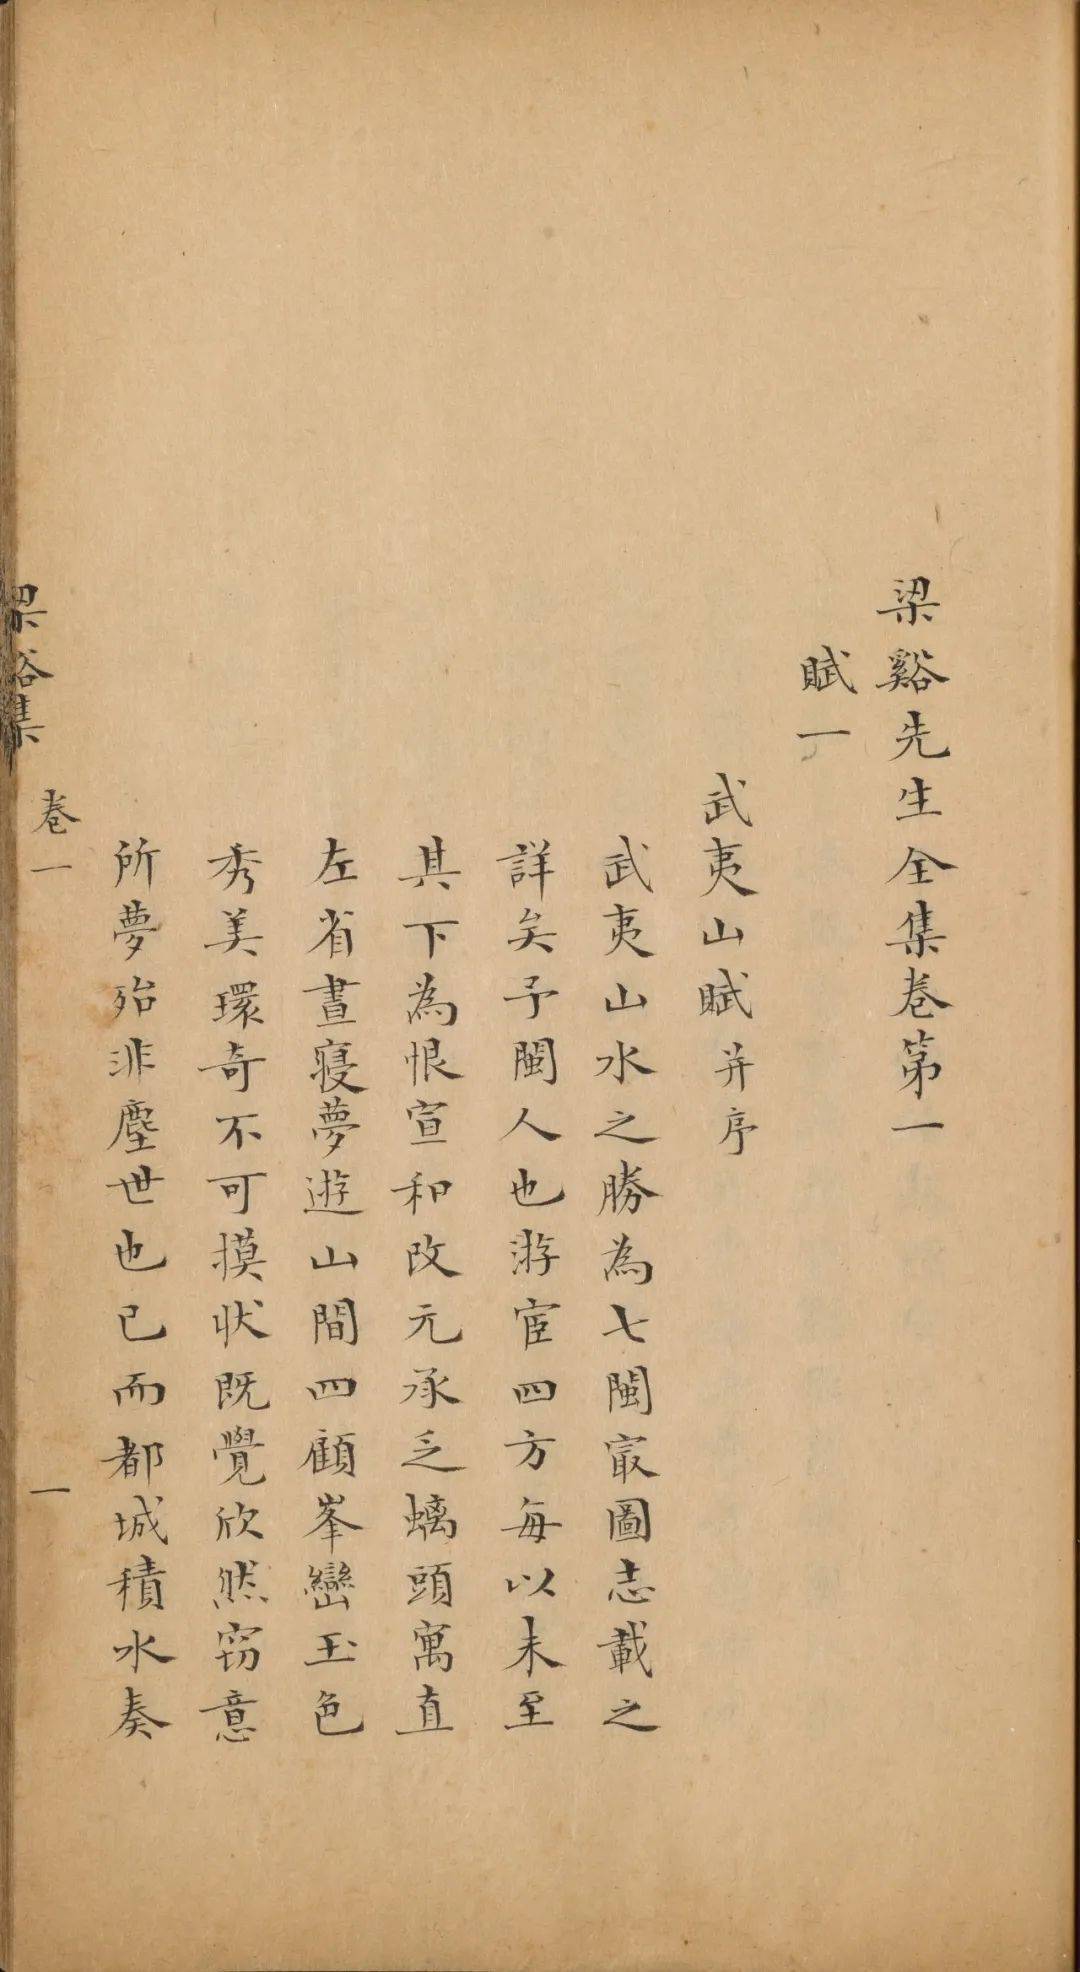 梁谿先生全集卷第一
賦一
武夷山賦并序
武夷山水之勝為七閩冣圖志載之
詳矣予閩人也游宦四方每以未至
其下為恨宣和改元承乏螭頭寓直
左省晝寢夢遊山間四顧峯巒玉色
秀美環奇不可摸狀既覺欣然窃意
所夢殆非塵世也已而都城積水奏
梁谿集 卷一 一